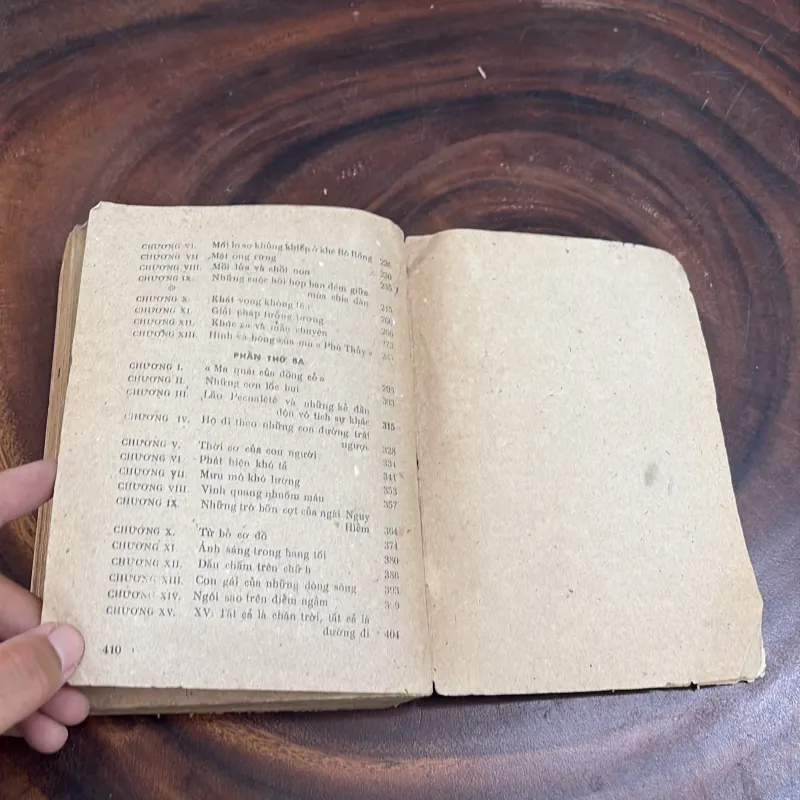 CHƯƠNG VI. Mối lo sợ khủng khiếp ở khe Bò Rống 226
CHƯƠNG VII Mật ong rừng 230
CHƯƠNG VIII. Mồi lửa và chồi non 235
CHƯƠNG IX. Những cuộc hội họp ban đêm giữa
mùa chia đàn 245
CHƯƠNG X. Khát vọng không tê 260
CHƯƠNG XI. Giải pháp tưởng tượng 266
CHƯƠNG XII. Khúc ca và mẩu chuyện 273
CHƯƠNG XIII. Hình và bóng của mụ « Phù Thủy »
PHẦN THỨ BA
CHƯƠNG I. « Ma quái của đồng cỏ » 295
CHƯƠNG II. Những cơn lốc bụi 303
CHƯƠNG III. Lão Pecnalété và những kẻ dẫn
dộn vô tích sự khác 315
CHƯƠNG IV. Họ đi theo những con đường trái
ngược 328
CHƯƠNG V. Thời cơ của con người 334
CHƯƠNG VI. Phát hiện khó tả 341
CHƯƠNG VII. Mưu mô khó lường 353
CHƯƠNG VIII. Vinh quang nhuốm máu 357
CHƯƠNG IX. Những trò bỡn cợt của ngài Nguy
Hiểm 364
CHƯƠNG X. Từ bỏ cơ đồ 374
CHƯƠNG XI. Ánh sáng trong hang tối 380
CHƯƠNG XII. Dấu chấm trên chữ i 386
CHƯƠNG XIII. Con gái của những dòng sông 393
CHƯƠNG XIV. Ngôi sao trên điềm ngầm
CHƯƠNG XV. XV. Tất cả là chân trời, tất cả là
đường đi 404
410